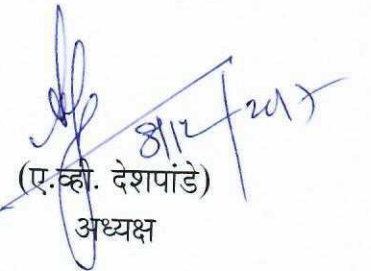 8/12/2017
(ए.व्ही. देशपांडे)
अध्यक्ष